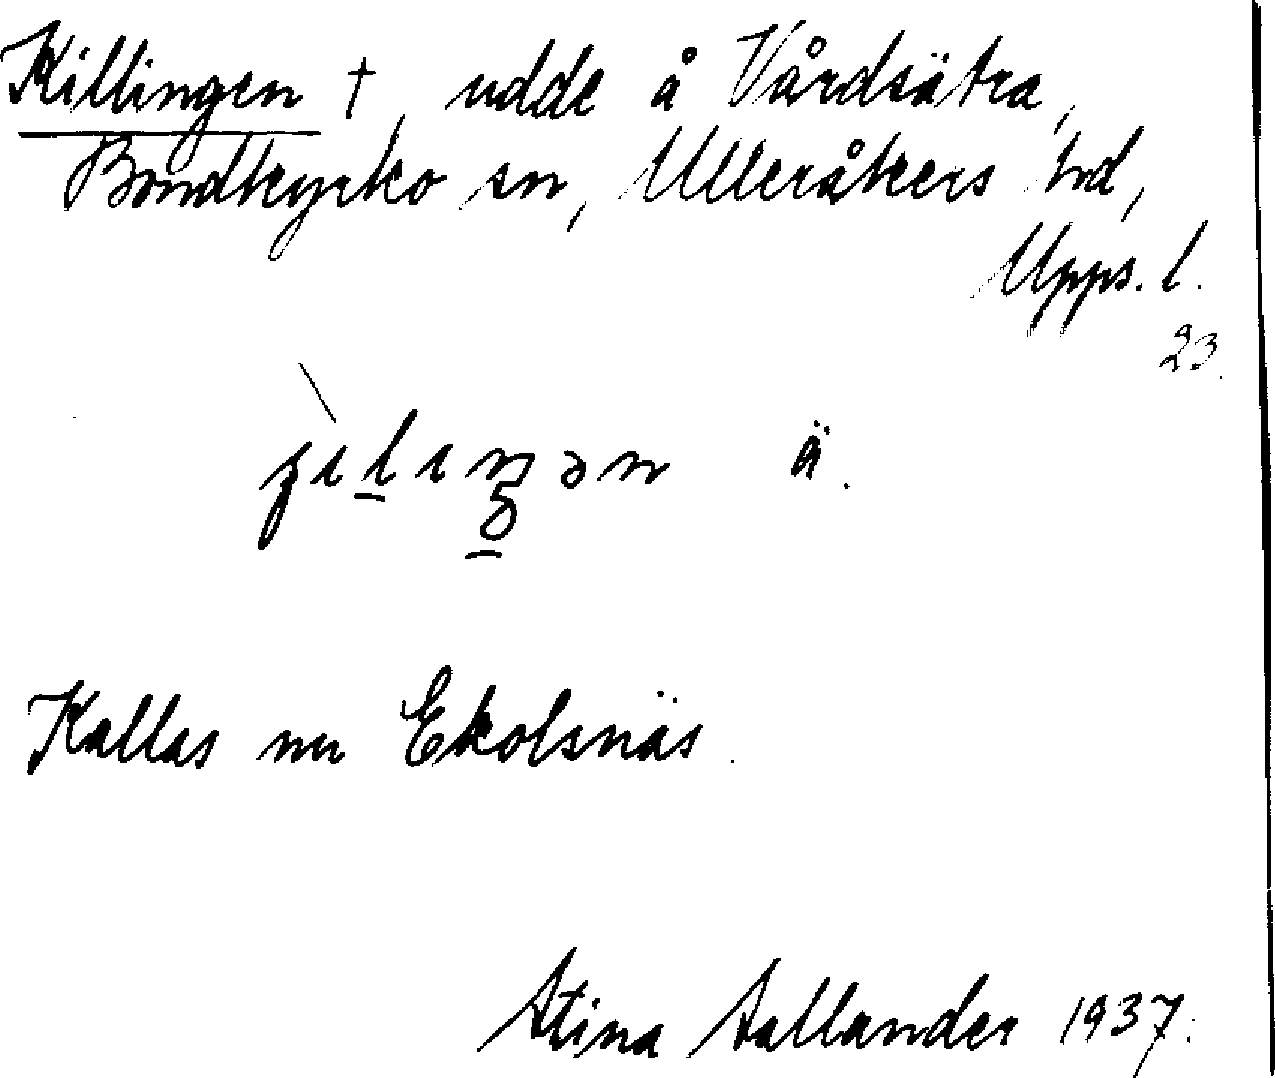 Killingen †, udde å Vårdsätra,
Bondkyrko sn, Ulleråkers hd,
Upps. l.
23.
ä.
Kallas nu Ekolsnäs.
Stina Sallander 1937.